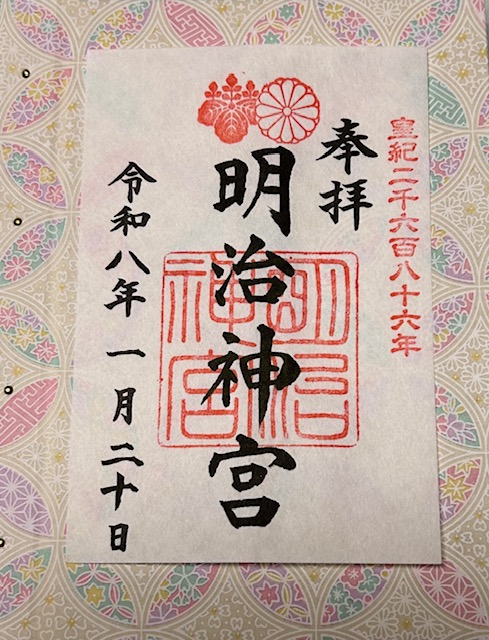 皇紀二千六百八十六年
奉拝
明治神宮
明治
神宮
令和八年 一月二十日